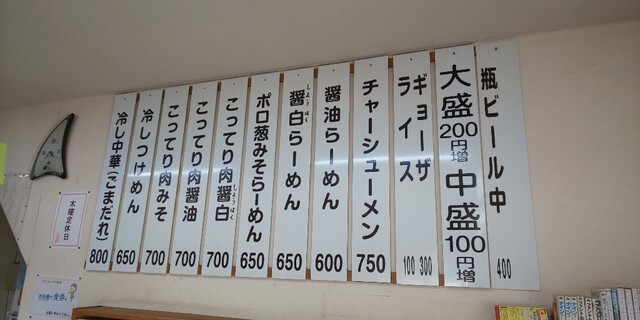 瓶ビール中 400
大盛200円増 中盛100円増
ギョーザ 300
ライス 100
チャーシューメン 750
醤油らーめん 600
醤白らーめん 650
しょうはく
ポロ葱みそらーめん 650
こってり肉醤白 700
しょうはく
こってり肉醤油 700
こってり肉みそ 700
冷しつけめん 650
冷し中華(ごまだれ) 800
木曜定休日